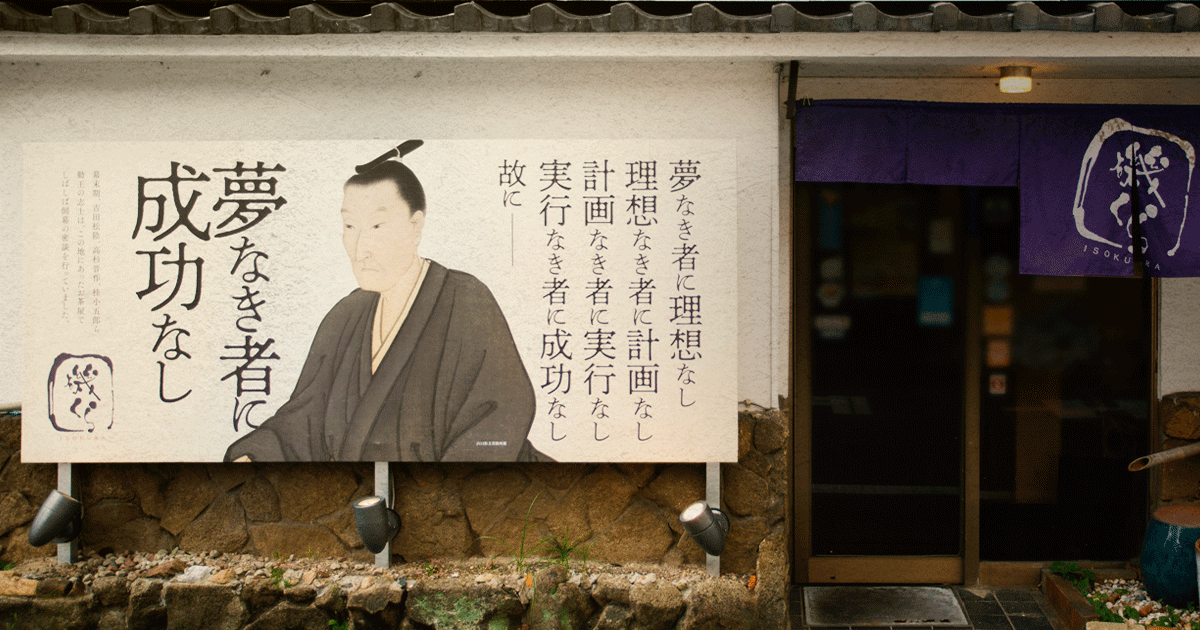 夢なき者に理想なし
理想なき者に計画なし
計画なき者に実行なし
実行なき者に成功なし
故に――
夢なき者に
成功なし
幕末期、吉田松陰、高杉晋作、桂小五郎ら
勤王の志士は、この地にあったお茶屋で
しばしば倒幕の密議を行っていました。
磯くら
ISOKURA
磯くら
ISOKURA